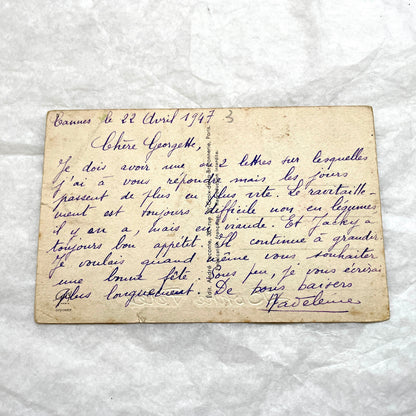 Cannes le 22 Avril 1947 3
Chère Georgette,
Je dois avoir une ou 2 lettres sur lesquelles
j'ai à vous répondre mais les jours
passent de plus en plus vite. Le ravitaille-
ment est toujours difficile non en légumes
il y en a, mais en viande. Et Jacky a
toujours bon appétit. Il continue à grandir
Je voulais quand même vous souhaiter
une bonne fête. Sous peu, je vous écrirai
plus longuement. De bons baisers
Madeleine